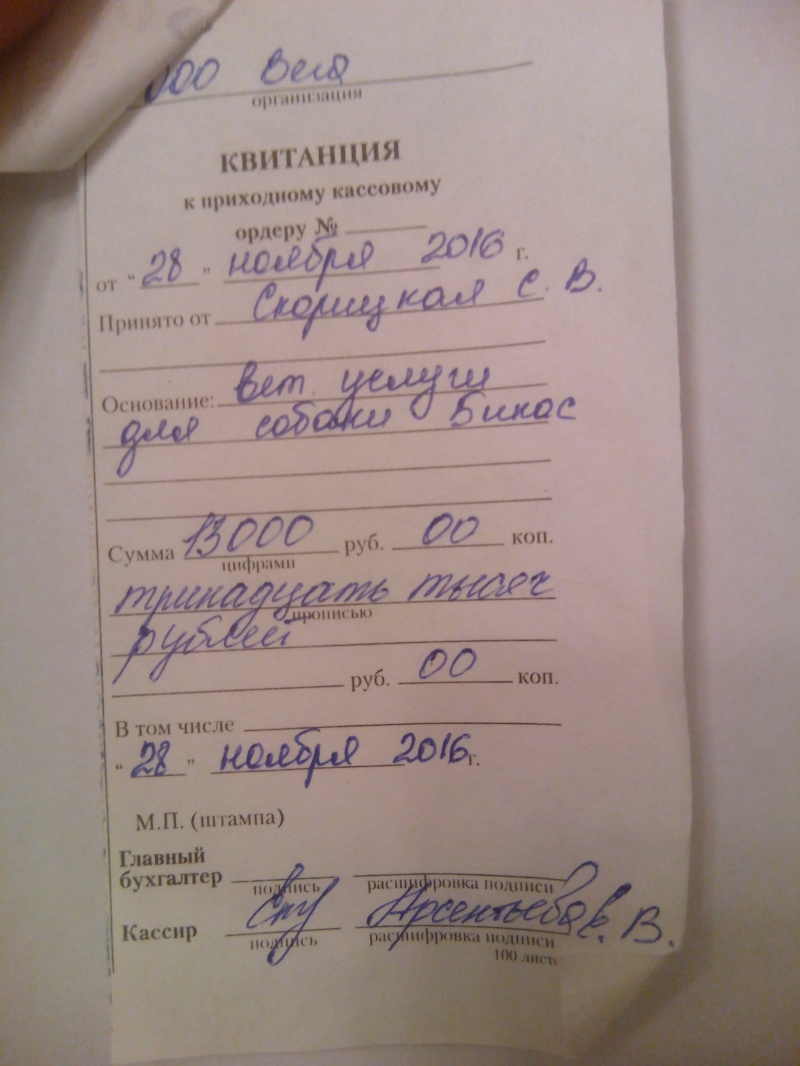 ООО Вега
организация
КВИТАНЦИЯ
к приходному кассовому
ордеру №
от "28" ноября 2016 г.
Принято от Скорицкая С. В.
Основание: вет. услуги
для собаки Бикас
Сумма 13000 руб. 00 коп.
цифрами
тринадцать тысяч
прописью
рублей
руб. 00 коп.
В том числе
"28" ноября 2016 г.
М.П. (штампа)
Главный
бухгалтер
подпись расшифровка подписи
Кассир Арсентьева В.
подпись расшифровка подписи
100 листо